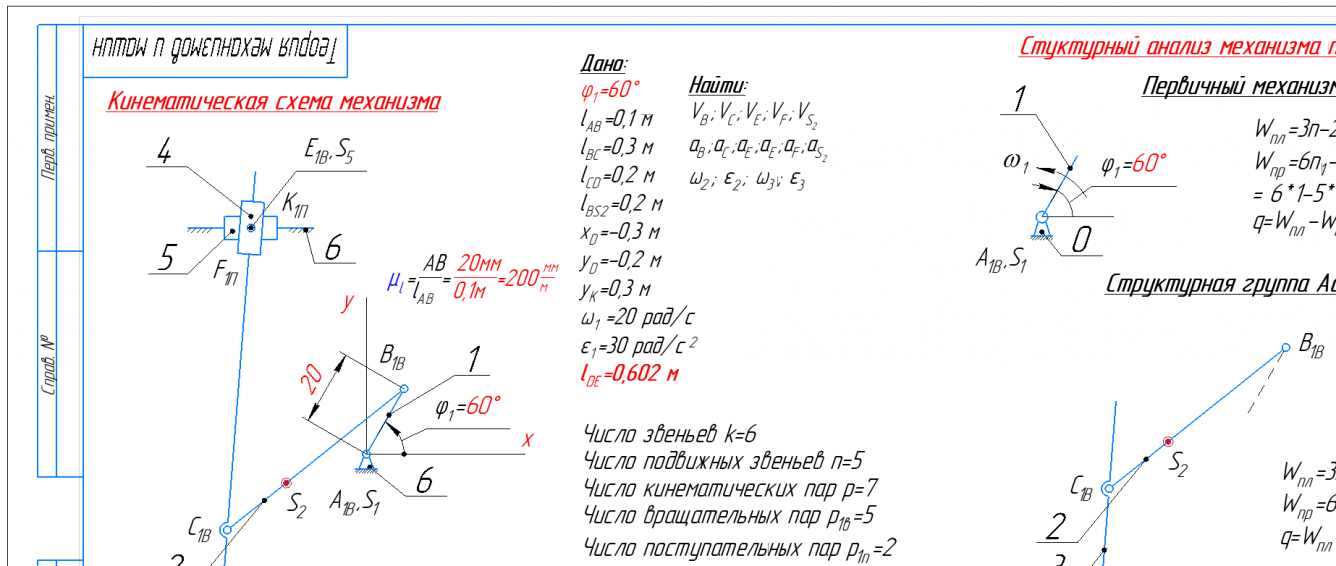 Теория механизмов и машин
Перв. примен.
Справ. №
Кинематическая схема механизма
4
E1В, S5
K1П
5
F1П
6
μl = AB/lAB = 20мм/0,1м = 200 мм/м
y
B1В
1
20
φ1=60°
x
6
A1В, S1
S2
C1В
Дано:
φ1=60°
lAB=0,1 м
lBC=0,3 м
lCD=0,2 м
lBS2=0,2 м
xD=-0,3 м
yD=-0,2 м
yK=0,3 м
ω1 =20 рад/с
ε1=30 рад/с²
lDE=0,602 м
Найти:
VB; VC; VE; VF; VS2
aB; aC; aE; aE; aF; aS2
ω2; ε2; ω3; ε3
Число звеньев k=6
Число подвижных звеньев n=5
Число кинематических пар p=7
Число вращательных пар p1в=5
Число поступательных пар p1п=2
Стуктурный анализ механизма
Первичный механизм
1
ω1
φ1=60°
0
A1В, S1
Wпл=3n-2
Wпр=6n1-
= 6*1-5*
q=Wпл-W
Структурная группа
B1В
S2
C1В
2
Wпл=3
Wпр=6
q=Wпл